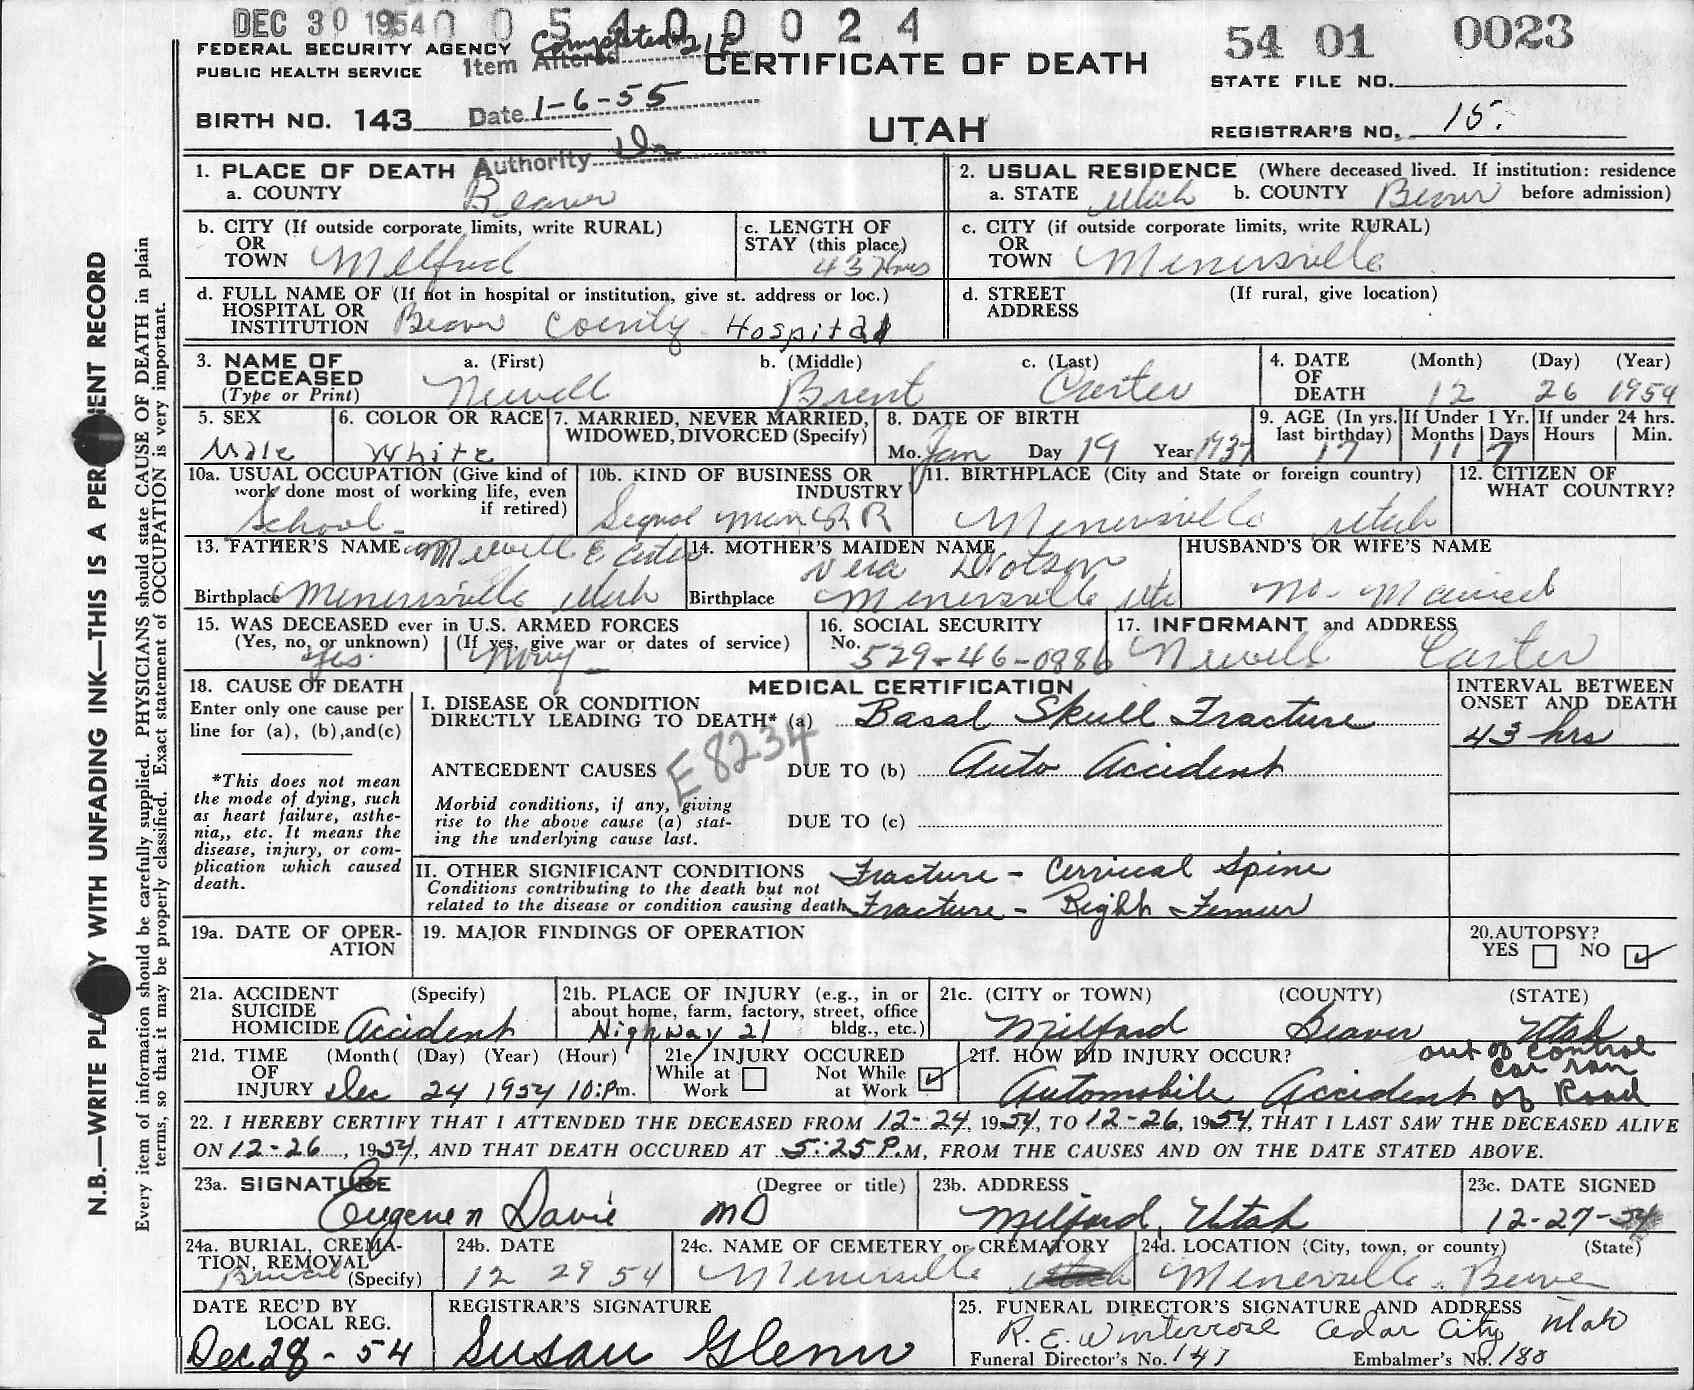 DEC 30 1954 0 0 5 4 0 0 0 2 4
54 01 0023
FEDERAL SECURITY AGENCY
PUBLIC HEALTH SERVICE
Completed 21F
Item Altered
CERTIFICATE OF DEATH
STATE FILE NO.
BIRTH NO. 143
Date 1-6-55
UTAH
REGISTRAR'S NO. 15.
Authority
1. PLACE OF DEATH
a. COUNTY Beaver
2. USUAL RESIDENCE (Where deceased lived. If institution: residence
a. STATE Utah b. COUNTY Beaver before admission)
b. CITY (If outside corporate limits, write RURAL)
OR
TOWN Melford
c. LENGTH OF
STAY (this place)
43 Hours
c. CITY (if outside corporate limits, write RURAL)
OR
TOWN Menersville
d. FULL NAME OF (If not in hospital or institution, give st. address or loc.)
HOSPITAL OR
INSTITUTION Beaver County Hospital
d. STREET (If rural, give location)
ADDRESS
3. NAME OF
DECEASED
(Type or Print)
a. (First) b. (Middle) c. (Last)
Newell Brent Carter
4. DATE (Month) (Day) (Year)
OF
DEATH 12 26 1954
5. SEX
Male
6. COLOR OR RACE
White
7. MARRIED, NEVER MARRIED,
WIDOWED, DIVORCED (Specify)
8. DATE OF BIRTH
Mo. Jan Day 19 Year 1937
9. AGE (In yrs.
last birthday)
17
If Under 1 Yr.
Months Days
11 7
If under 24 hrs.
Hours Min.
10a. USUAL OCCUPATION (Give kind of
work done most of working life, even
if retired)
School
10b. KIND OF BUSINESS OR
INDUSTRY
11. BIRTHPLACE (City and State or foreign country)
Menersville Utah
12. CITIZEN OF
WHAT COUNTRY?
13. FATHER'S NAME Newell E Carter
Birthplace Menersville Utah
14. MOTHER'S MAIDEN NAME
Vera Dotson
Birthplace Menersville Uta
HUSBAND'S OR WIFE'S NAME
No. Married
15. WAS DECEASED ever in U.S. ARMED FORCES
(Yes, no, or unknown) (If yes, give war or dates of service)
yes. Navy
16. SOCIAL SECURITY
No. 529-46-0886
17. INFORMANT and ADDRESS
Newell Carter
18. CAUSE OF DEATH
Enter only one cause per
line for (a), (b), and (c)
*This does not mean
the mode of dying, such
as heart failure, asthe-
nia,, etc. It means the
disease, injury, or com-
plication which caused
death.
MEDICAL CERTIFICATION
I. DISEASE OR CONDITION
DIRECTLY LEADING TO DEATH* (a) Basal Skull Fracture
E8234
ANTECEDENT CAUSES DUE TO (b) Auto Accident
Morbid conditions, if any, giving
rise to the above cause (a) stat-
ing the underlying cause last.
DUE TO (c)
INTERVAL BETWEEN
ONSET AND DEATH
43 hrs
II. OTHER SIGNIFICANT CONDITIONS
Conditions contributing to the death but not
related to the disease or condition causing death
Fracture - Cervical Spine
Fracture - Right Femur
19a. DATE OF OPER-
ATION
19. MAJOR FINDINGS OF OPERATION
20. AUTOPSY?
YES NO
21a. ACCIDENT (Specify)
SUICIDE
HOMICIDE Accident
21b. PLACE OF INJURY (e.g., in or
about home, farm, factory, street, office
bldg., etc.)
Highway 21
21c. (CITY or TOWN) (COUNTY) (STATE)
Milford Beaver Utah
21d. TIME (Month( (Day) (Year) (Hour)
OF
INJURY Dec 24 1954 10:Pm.
21e. INJURY OCCURED
While at Not While
Work at Work
21f. HOW DID INJURY OCCUR?
out of control
car ran
Automobile Accident of Road
22. I HEREBY CERTIFY THAT I ATTENDED THE DECEASED FROM 12-24, 1954, TO 12-26, 1954, THAT I LAST SAW THE DECEASED ALIVE
ON 12-26, 1954, AND THAT DEATH OCCURED AT 5:25 P.M, FROM THE CAUSES AND ON THE DATE STATED ABOVE.
23a. SIGNATURE (Degree or title)
Eugene n Davie MD
23b. ADDRESS
Milford, Utah
23c. DATE SIGNED
12-27-54
24a. BURIAL, CREMA-
TION, REMOVAL
(Specify)
Burial
24b. DATE
12 29 54
24c. NAME OF CEMETERY or CREMATORY
Menersville
24d. LOCATION (City, town, or county) (State)
Menersville. Beaver
Utah
DATE REC'D BY
LOCAL REG.
Dec 28 - 54
REGISTRAR'S SIGNATURE
Susan Glenn
25. FUNERAL DIRECTOR'S SIGNATURE AND ADDRESS
R. E. Winterrose Cedar City
Funeral Director's No. 147 Embalmer's No. 180
N.B.—WRITE PLA Y WITH UNFADING INK—THIS IS A PER ENT RECORD
Every item of information should be carefully supplied. PHYSICIANS should state CAUSE OF DEATH in plain
terms, so that it may be properly classified. Exact statement of OCCUPATION is very important.